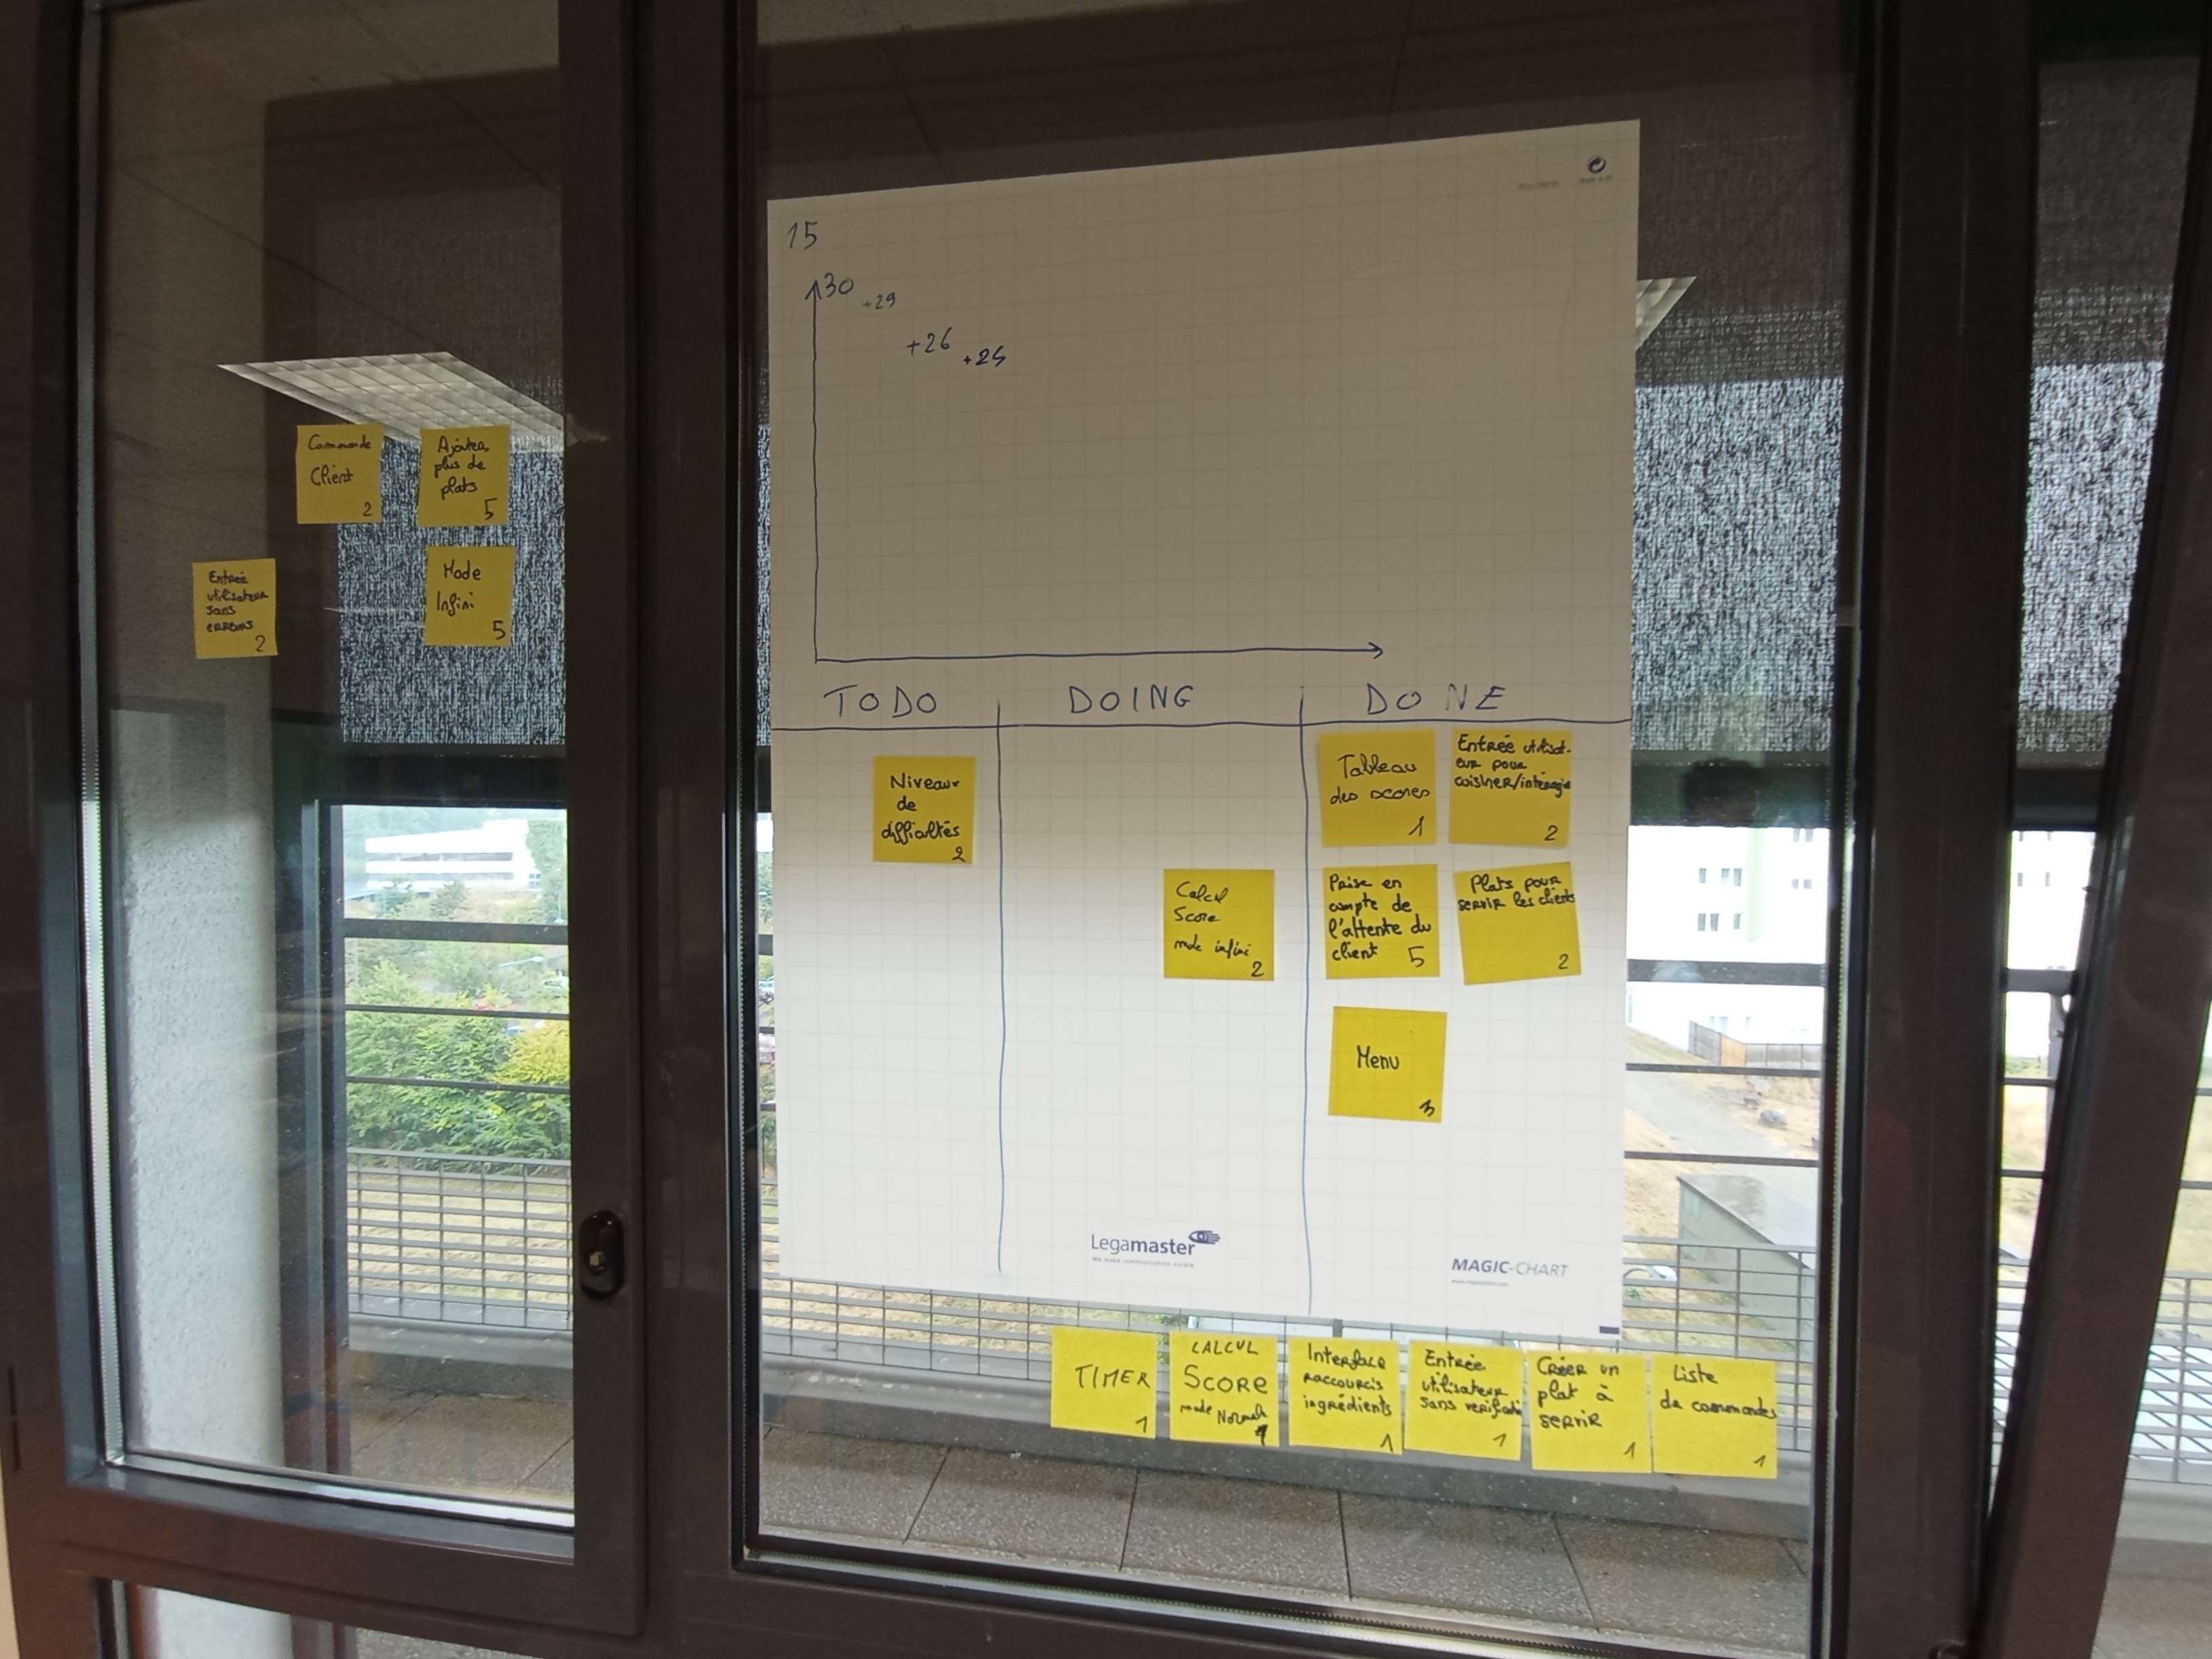 Commande
Client
2
Ajouter
plus de
plats
5
Entrée
utilisateur
sans
erreurs
2
Mode
Infini
5
15
30
+29
+26
+25
TODO
DOING
DONE
Niveaux
de
difficultés
2
Calcul
Score
mode infini
2
Tableau
des scores
1
Entrée utilisat-
eur pour
cuisiner/interagir
2
Prise en
compte de
l'attente du
client
5
Plats pour
servir les clients
2
Menu
3
Legamaster
We make communication visible
MAGIC-CHART
www.legamaster.com
TIMER
1
CALCUL
SCORE
mode Normal
1
Interface
raccourcis
ingrédients
1
Entrée
utilisateur
sans
1
Créer un
plat à
servir
1
Liste
de commandes
1